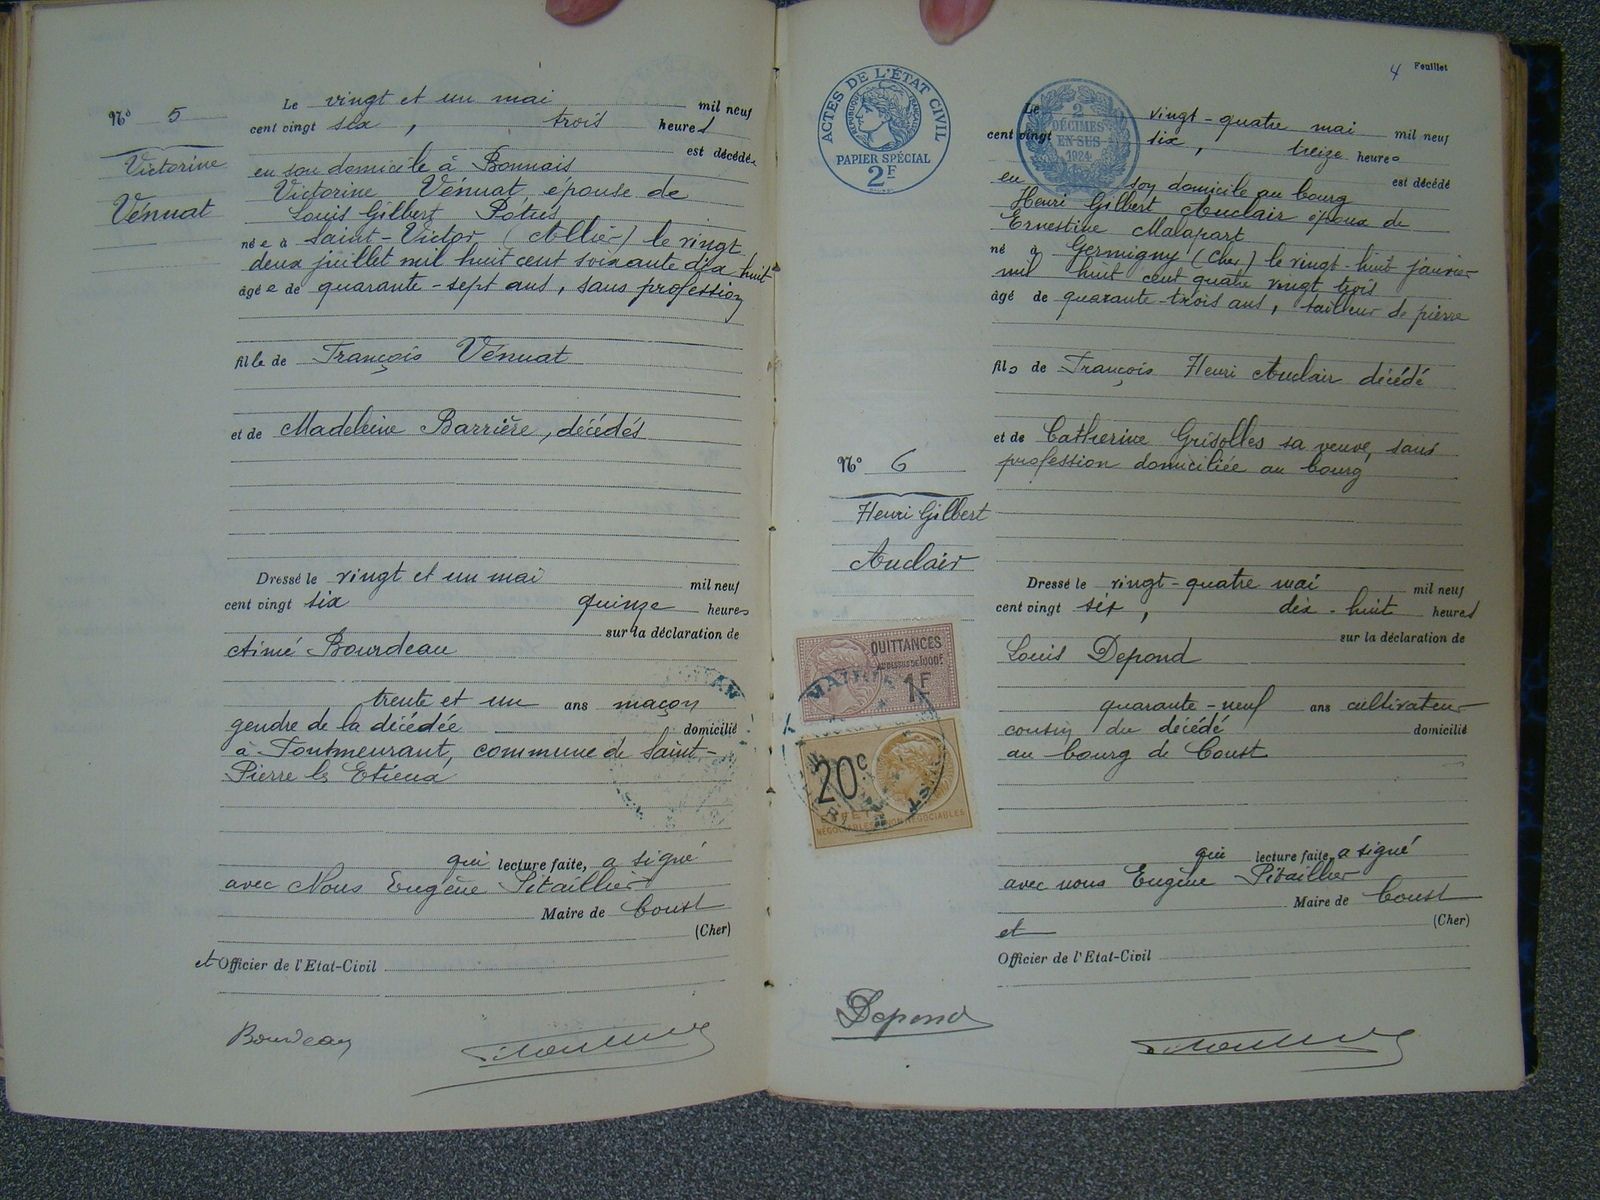 N° 5
Victorine
Vénuat
Le vingt et un mai mil neuf
cent vingt six , trois heures
est décédée
en son domicile à Bonnais
Victorine Vénuat, épouse de
Louis Gilbert Potus
née à Saint-Victor (Allier) le vingt
deux juillet mil huit cent soixante dix huit
âgée de quarante-sept ans, sans profession
fille de François Vénuat
et de Madeleine Barrière, décédés
Dressé le vingt et un mai mil neuf
cent vingt six quinze heures
sur la déclaration de
Aimé Bourdeau
trente et un ans maçon
gendre de la décédée domicilié
à Fontmeurant, commune de Saint-
Pierre les Etieux
qui lecture faite, a signé
avec Nous Eugène Pitaillier
Maire de Coust
(Cher)
et Officier de l'Etat-Civil
Bourdeau
4 Feuillet
ACTES DE L'ÉTAT CIVIL
RÉPUBLIQUE FRANÇAISE
PAPIER SPÉCIAL
2F
2
DÉCIMES
EN SUS
1924
Le vingt-quatre mai mil neuf
cent vingt six , treize heures
en son domicile au bourg est décédé
Henri Gilbert Auclair époux de
Ernestine Malapart
né à Germigny (Cher) le vingt-huit janvier
mil huit cent quatre vingt trois
âgé de quarante-trois ans, tailleur de pierre
fils de François Henri Auclair décédé
et de Catherine Grisolles sa veuve, sans
profession domiciliée au bourg
N° 6
Henri Gilbert
Auclair
Dressé le vingt-quatre mai mil neuf
cent vingt six , dix-huit heures
sur la déclaration de
Louis Depond
quarante-neuf ans cultivateur
cousin du décédé domicilié
au bourg de Coust
QUITTANCES
AU DESSUS DE 1000F
1F
20c
EFFETS
NÉGOCIABLES & NON NÉGOCIABLES
qui lecture faite, a signé
avec nous Eugène Pitaillier
Maire de Coust
(Cher)
et
Officier de l'Etat-Civil
Depond